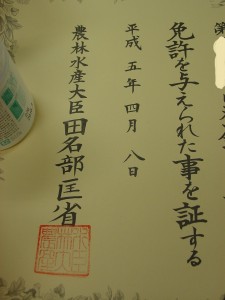 第
免許を与えられた事を証する
平成五年四月八日
農林水産大臣 田名部匡省